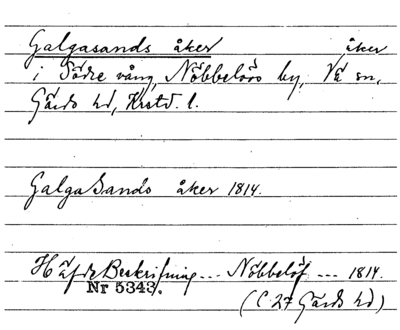 Galgasands åker åker
i Södre vång, Nöbbelövs by, Vä sn,
Gärds hd, Krstd. l.
Galga Sands åker 1814.
Häfde Beskrifning... Nöbbelöf ... 1814.
Nr 5343.
(C. 27 Gärds hd)